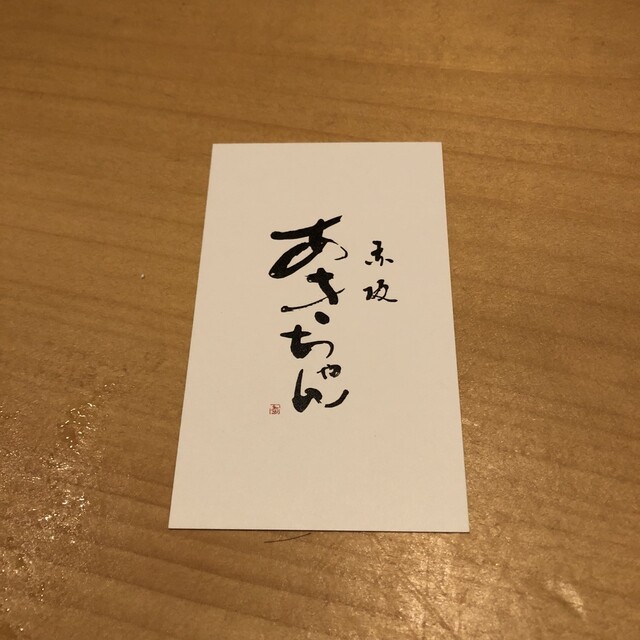 赤坂
あきちゃん